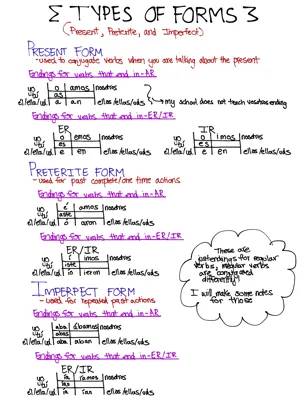 Σ TYPES OF FORMS 3
(Present, Preterite, and Imperfect)
PRESENT FORM
- used to conjugate verbs when you are talking about the present
Endings for verbs that end in -AR
yo o amos nosotros
tú as
él/ella/ud a an ellos/ellas/uds
→ my school does not teach vosotros ending
Endings for verbs that end in -ER/IR
ER
yo o emos nosotros
tú es
él/ella/ud e en ellos/ellas/uds
IR
yo o imos nosotros
tú es
él/ella/ud e en ellos/ellas/uds
PRETERITE FORM
- used for past complete/one time actions
Endings for verbs that end in -AR
yo é amos nosotros
tú aste
él/ella/ud ó aron ellos/ellas/uds
Endings for verbs that end in -ER/IR
ER/IR
yo í imos nosotros
tú iste
él/ella/ud ió ieron ellos/ellas/uds
These are
for regular
verbs, irregular verbs
are conjugated
differently!
I will make some notes
for those
IMPERFECT FORM
- used for repeated past actions
Endings for verbs that end in -AR
yo aba ábamos nosotros
tú abas
él/ella/ud aba aban ellos/ellas/uds
Endings for verbs that end in -ER/IR
ER/IR
yo ía íamos nosotros
tú ías
él/ella/ud ía ían ellos/ellas/uds